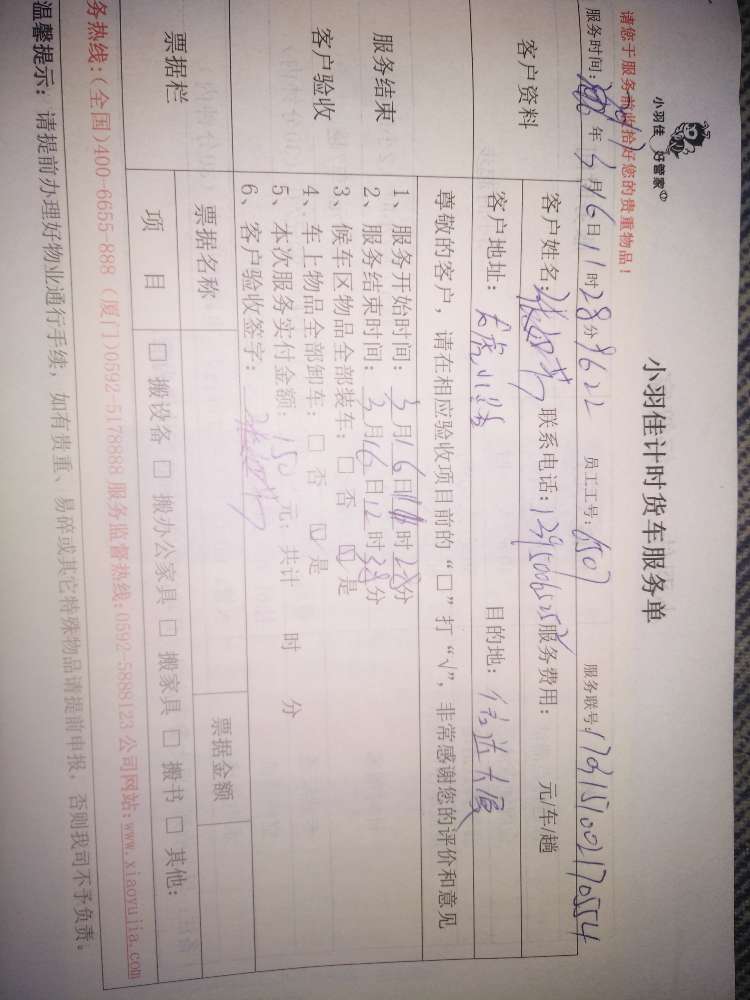 小羽佳 好管家
小羽佳计时货车服务单
请您于服务前收拾好您的贵重物品！
服务时间： 年 3月16日11时28分 员工工号： 服务联号：
客户资料
客户姓名： 联系电话： 服务费用： 元/车/趟
客户地址： 目的地：
尊敬的客户，请在相应验收项目前的“□”打“√”，非常感谢您的评价和意见
服务结束
客户验收
1、服务开始时间：3月16日11时28分
2、服务结束时间：3月16日12时38分
3、候车区物品全部装车：□ 否 ☑ 是
4、车上物品全部卸车：□ 否 ☑ 是
5、本次服务实付金额：150元；共计 时 分
6、客户验收签字：
票据栏
票据名称 票据金额
项 目 □ 搬设备 □ 搬办公家具 □ 搬家具 □ 搬书 □ 其他：
务热线：(全国)400-6655-888 (厦门)0592-5178888 服务监督热线:0592-5888123 公司网站:www.xiaoyujia.com
温馨提示：请提前办理好物业通行手续，如有贵重、易碎或其它特殊物品请提前申报，否则我司不予负责。